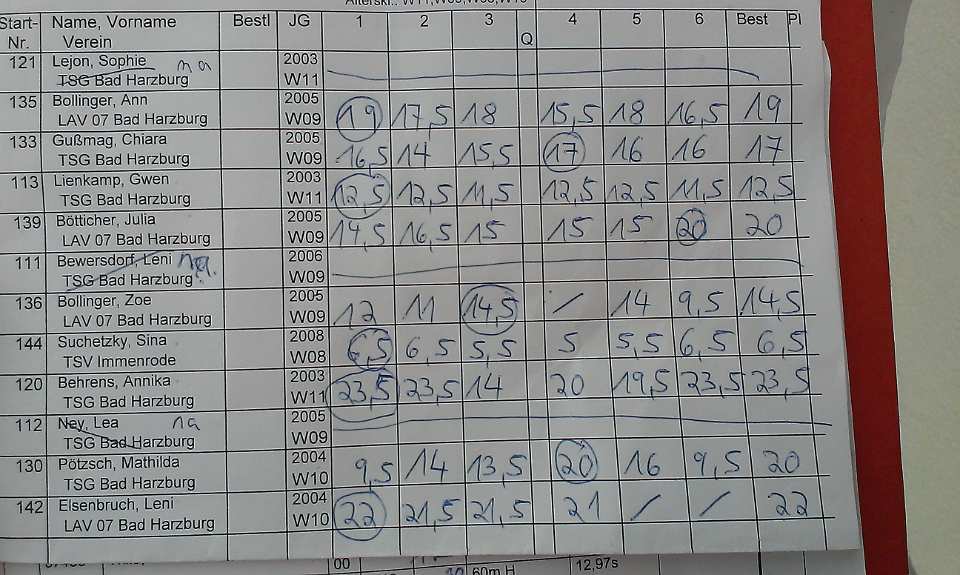 Start- Name, Vorname Bestl JG 1 2 3 4 5 6 Best Pl
Nr. Verein Q
121 Lejon, Sophie na 2003
TSG Bad Harzburg W11
135 Bollinger, Ann 2005
LAV 07 Bad Harzburg W09 19 17,5 18 15,5 18 16,5 19
133 Gußmag, Chiara 2005
TSG Bad Harzburg W09 16,5 14 15,5 17 16 16 17
113 Lienkamp, Gwen 2003
TSG Bad Harzburg W11 12,5 12,5 11,5 12,5 12,5 11,5 12,5
139 Bötticher, Julia 2005
LAV 07 Bad Harzburg W09 14,5 16,5 15 15 15 20 20
111 Bewersdorf, Leni na. 2006
TSG Bad Harzburg W09
136 Bollinger, Zoe 2005
LAV 07 Bad Harzburg W09 12 11 14,5 / 14 9,5 14,5
144 Suchetzky, Sina 2008
TSV Immenrode W08 6,5 6,5 5,5 5 5,5 6,5 6,5
120 Behrens, Annika 2003
TSG Bad Harzburg W11 23,5 23,5 14 20 19,5 23,5 23,5
112 Ney, Lea na 2005
TSG Bad Harzburg W09
130 Pötzsch, Mathilda 2004
TSG Bad Harzburg W10 9,5 14 13,5 20 16 9,5 20
142 Elsenbruch, Leni 2004
LAV 07 Bad Harzburg W10 22 21,5 21,5 21 / / 22
00 60m H 12,97s